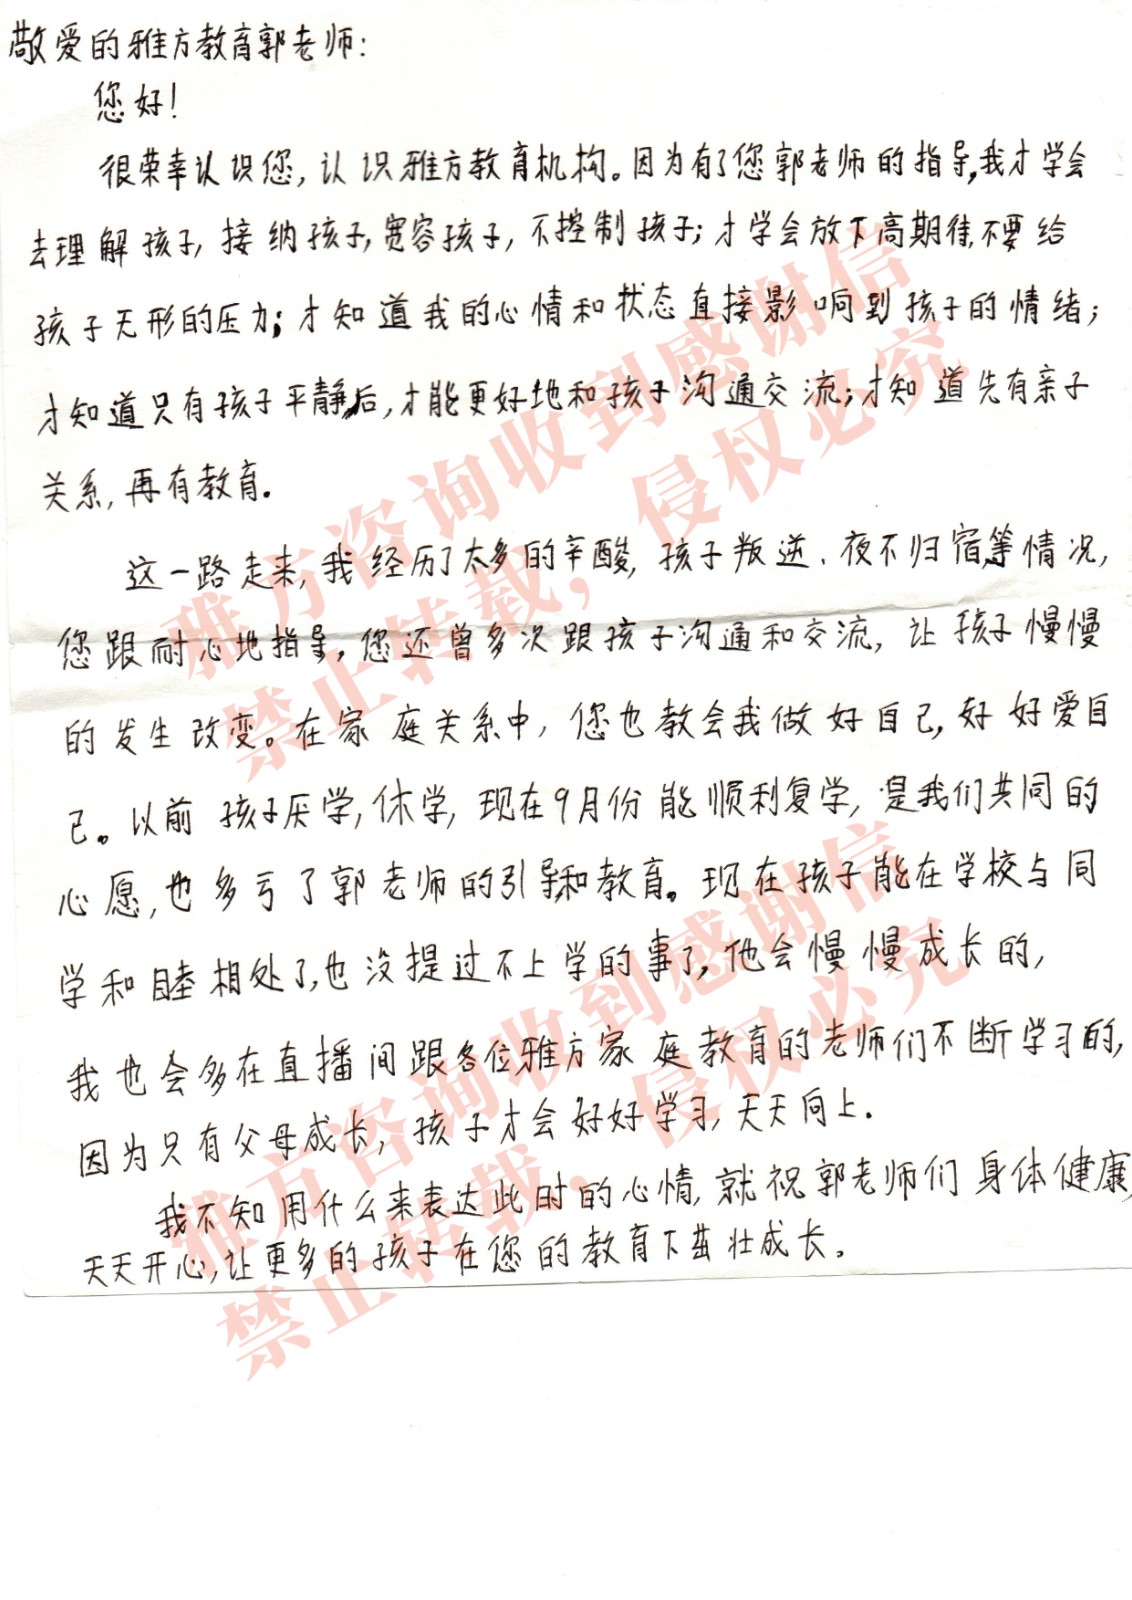 敬爱的雅方教育郭老师:
您好!
很荣幸认识您,认识雅方教育机构。因为有了您郭老师的指导,我才学会
去理解孩子,接纳孩子,宽容孩子,不控制孩子;才学会放下高期待,不要给
孩子无形的压力;才知道我的心情和状态直接影响到孩子的情绪;
才知道只有孩子平静后,才能更好地和孩子沟通交流;才知道先有亲子
关系,再有教育。
这一路走来,我经历了太多的辛酸,孩子叛逆、夜不归宿等情况,
您跟耐心地指导,您还曾多次跟孩子沟通和交流,让孩子慢慢
的发生改变。在家庭关系中,您也教会我做好自己,好好爱自
己。以前孩子厌学,休学,现在9月份能顺利复学,是我们共同的
心愿,也多亏了郭老师的引导和教育。现在孩子能在学校与同
学和睦相处了,也没提过不上学的事了,他会慢慢成长的,
我也会多在直播间跟各位雅方家庭教育的老师们不断学习的,
因为只有父母成长,孩子才会好好学习,天天向上.
我不知用什么来表达此时的心情,就祝郭老师们身体健康,
天天开心,让更多的孩子在您的教育下茁壮成长。
雅方咨询收到感谢信
禁止转载,侵权必究
雅方咨询收到感谢信
禁止转载,侵权必究